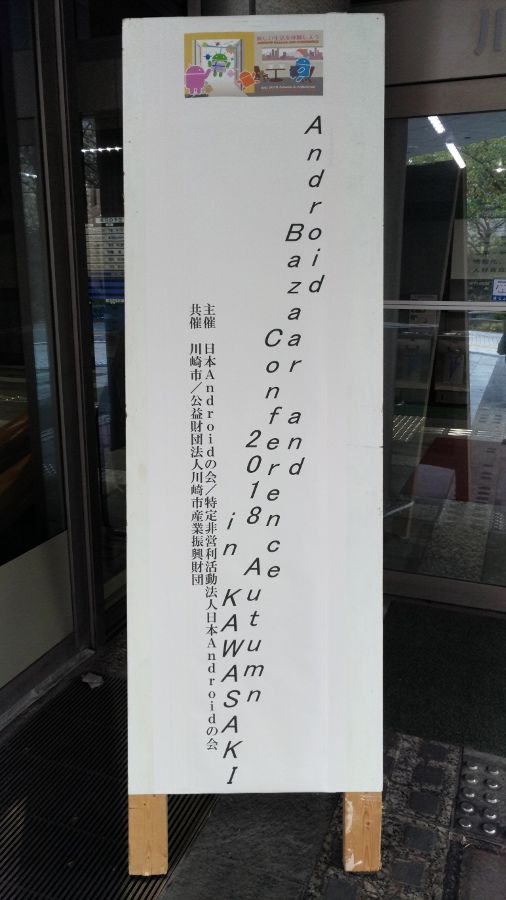 新しい生活を体験しよう
Android
Bazaar and
Conference
2018 Autumn
in KAWASAKI
主催 日本Androidの会/特定非営利活動法人日本Androidの会
共催 川崎市/公益財団法人川崎市産業振興財団
川